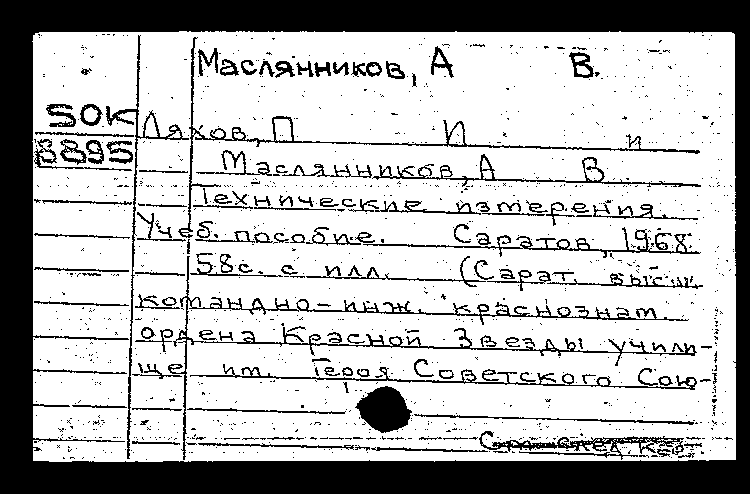 Маслянников, А В.
SOK
8895
Ляхов, П И и
Маслянников, А В
Технические измерения.
Учеб. пособие. Саратов, 1968.
58с. с илл. (Сарат. высш.
командно-инж. краснознам.
ордена Красной Звезды учили-
ще им. Героя Советского Сою-
См. след. кар.